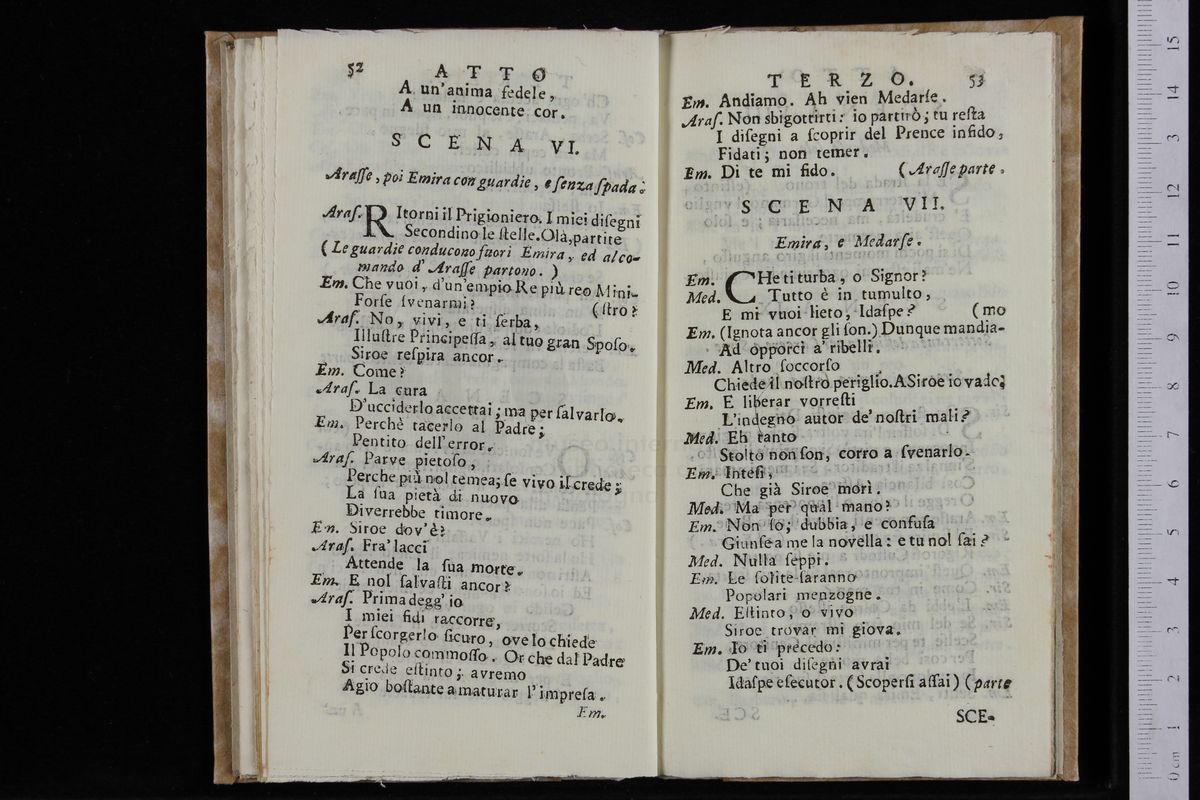 52 ATTO
A un'anima fedele,
A un innocente cor.
SCENA VI.
Arasse, poi Emira con guardie, e senza spada.
Aras. RItorni il Prigioniero. I miei disegni
Secondino le stelle. Olà, partite
(Le guardie conducono fuori Emira, ed al co-
mando d'Arasse partono.)
Em. Che vuoi, d'un'empio Re più reo Mini-
Forse svenarmi? (stro?
Aras. No, vivi, e ti serba,
Illustre Principessa, al tuo gran Sposo.
Siroe respira ancor.
Em. Come?
Aras. La cura
D'ucciderlo accettai; ma per salvarlo.
Em. Perchè tacerlo al Padre;
Pentito dell'error.
Aras. Parve pietoso,
Perche più nol temea; se vivo il crede;
La sua pietà di nuovo
Diverrebbe timore.
Em. Siroe dov'è?
Aras. Fra' lacci
Attende la sua morte.
Em. E nol salvasti ancor?
Aras. Prima degg' io
I miei fidi raccorre,
Per scorgerlo sicuro, ove lo chiede
Il Popolo commosso. Or che dal Padre
Si crede estinto; avremo
Agio bostante a maturar l'impresa.
Em.
TERZO. 53
Em. Andiamo. Ah vien Medarse.
Aras. Non sbigottirti: io partirò; tu resta
I disegni a scoprir del Prence infido,
Fidati; non temer.
Em. Di te mi fido. (Arasse parte.
SCENA VII.
Emira, e Medarse.
Em. CHe ti turba, o Signor?
Med. Tutto è in tumulto,
E mi vuoi lieto, Idaspe? (mo
Em. (Ignota ancor gli son.) Dunque mandia-
Ad opporci a' ribelli.
Med. Altro soccorso
Chiede il nostro periglio. A Siroe io vado;
Em. E liberar vorresti
L'indegno autor de' nostri mali?
Med. Eh tanto
Stolto non son, corro a svenarlo.
Em. Intesi,
Che già Siroe morì.
Med. Ma per qual mano?
Em. Non so; dubbia, e confusa
Giunse a me la novella: e tu nol sai?
Med. Nulla seppi.
Em. Le solite saranno
Popolari menzogne.
Med. Estinto, o vivo
Siroe trovar mi giova.
Em. Io ti precedo:
De' tuoi disegni avrai
Idaspe esecutor. (Scopersi assai) (parte
SCE-